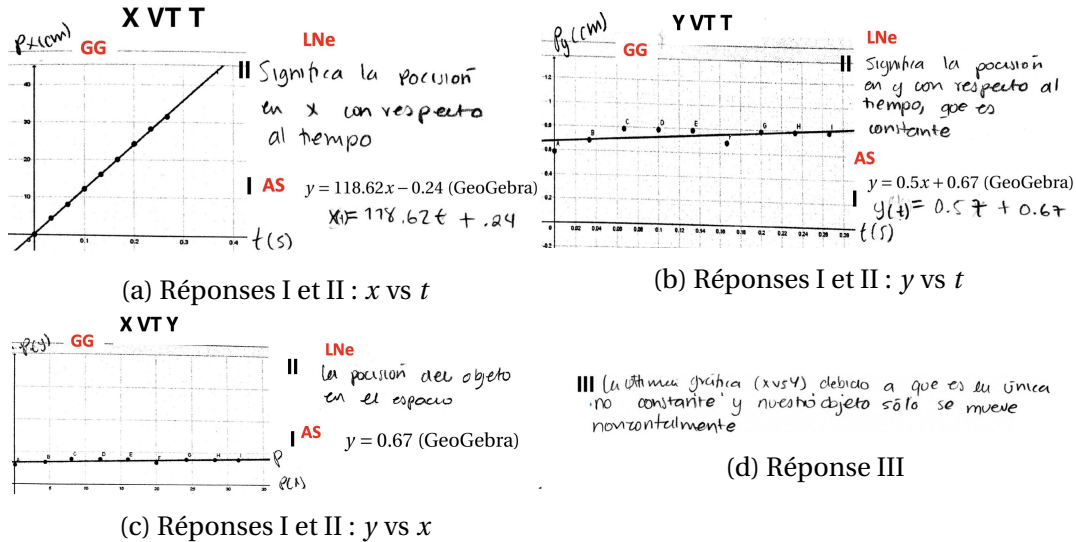 X VT T
Px(cm)
GG
LNe
II Significa la pocisión
en x con respecto
al tiempo
I AS y = 118.62x − 0.24 (GeoGebra)
X(t)= 118.62t + .24
40
20
10
0
0.1 0.2 0.3 0.4
t(s)
(a) Réponses I et II : x vs t
Y VT T
Py(cm)
GG
LNe
II Significa la pocisión
en y con respecto al
tiempo, que es
constante
AS
y = 0.5x + 0.67 (GeoGebra)
I y(t) = 0.5t + 0.67
B C D E G H I
0.02 0.04 0.06 0.08 0.1 0.12 0.14 0.16 0.18 0.2 0.22 0.24 0.26 0.28
-0.2
t(s)
(b) Réponses I et II : y vs t
X VT Y
P(y)
GG
LNe
II La pocisión del objeto
en el espacio
I AS y = 0.67 (GeoGebra)
A B C D E F G H I
P
5 10 15 20 25 30 35
P(x)
(c) Réponses I et II : y vs x
III La ultima gráfica (x vs Y) debido a que es la única
no constante y nuestro objeto sólo se mueve
horizontalmente
(d) Réponse III